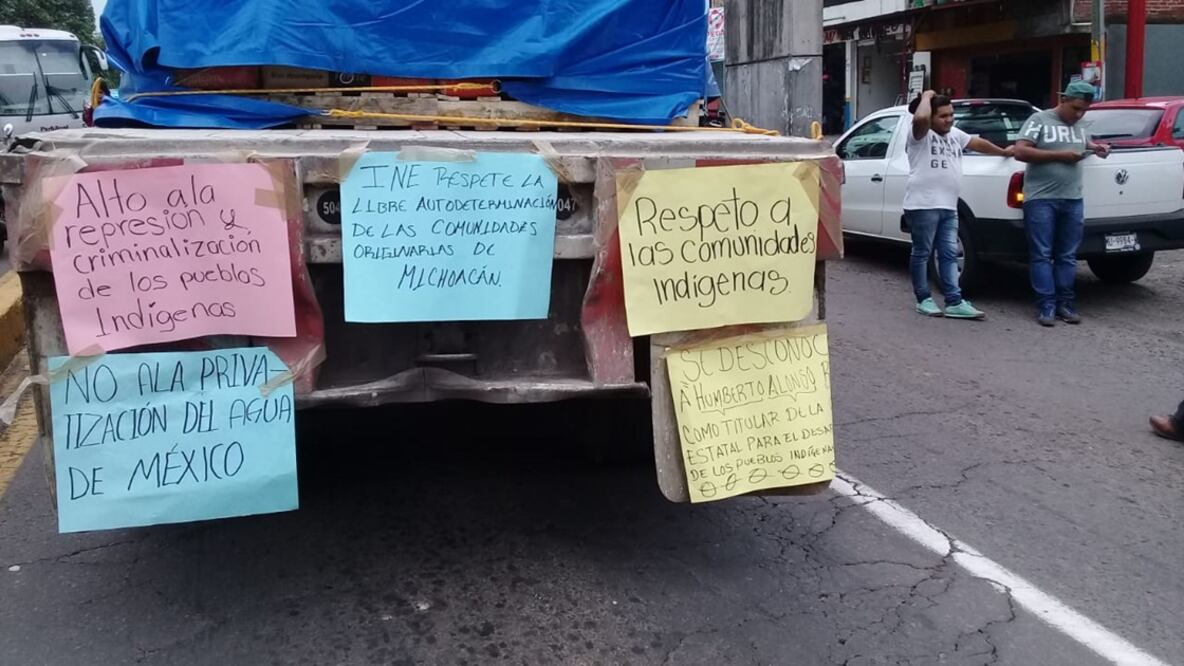 Alto ala
represión y
criminalización
de los pueblos
Indígenas
INE RESPETE LA
LIBRE AUTODETERMINACIÓN
DE LAS COMUNIDADES
ORIGINARIAS DE
MICHOACÁN.
Respeto a
las comunidades
Indígenas.
NO ALA PRIVA-
TIZACIÓN DEL AGUA
DE MÉXICO
SE DESCONOC
A HUMBERTO ALONSO
COMO TITULAR DE LA
ESTATAL PARA EL DESAR
DE LOS PUEBLOS INDÍGENA
504
047
HURL
EX
GE